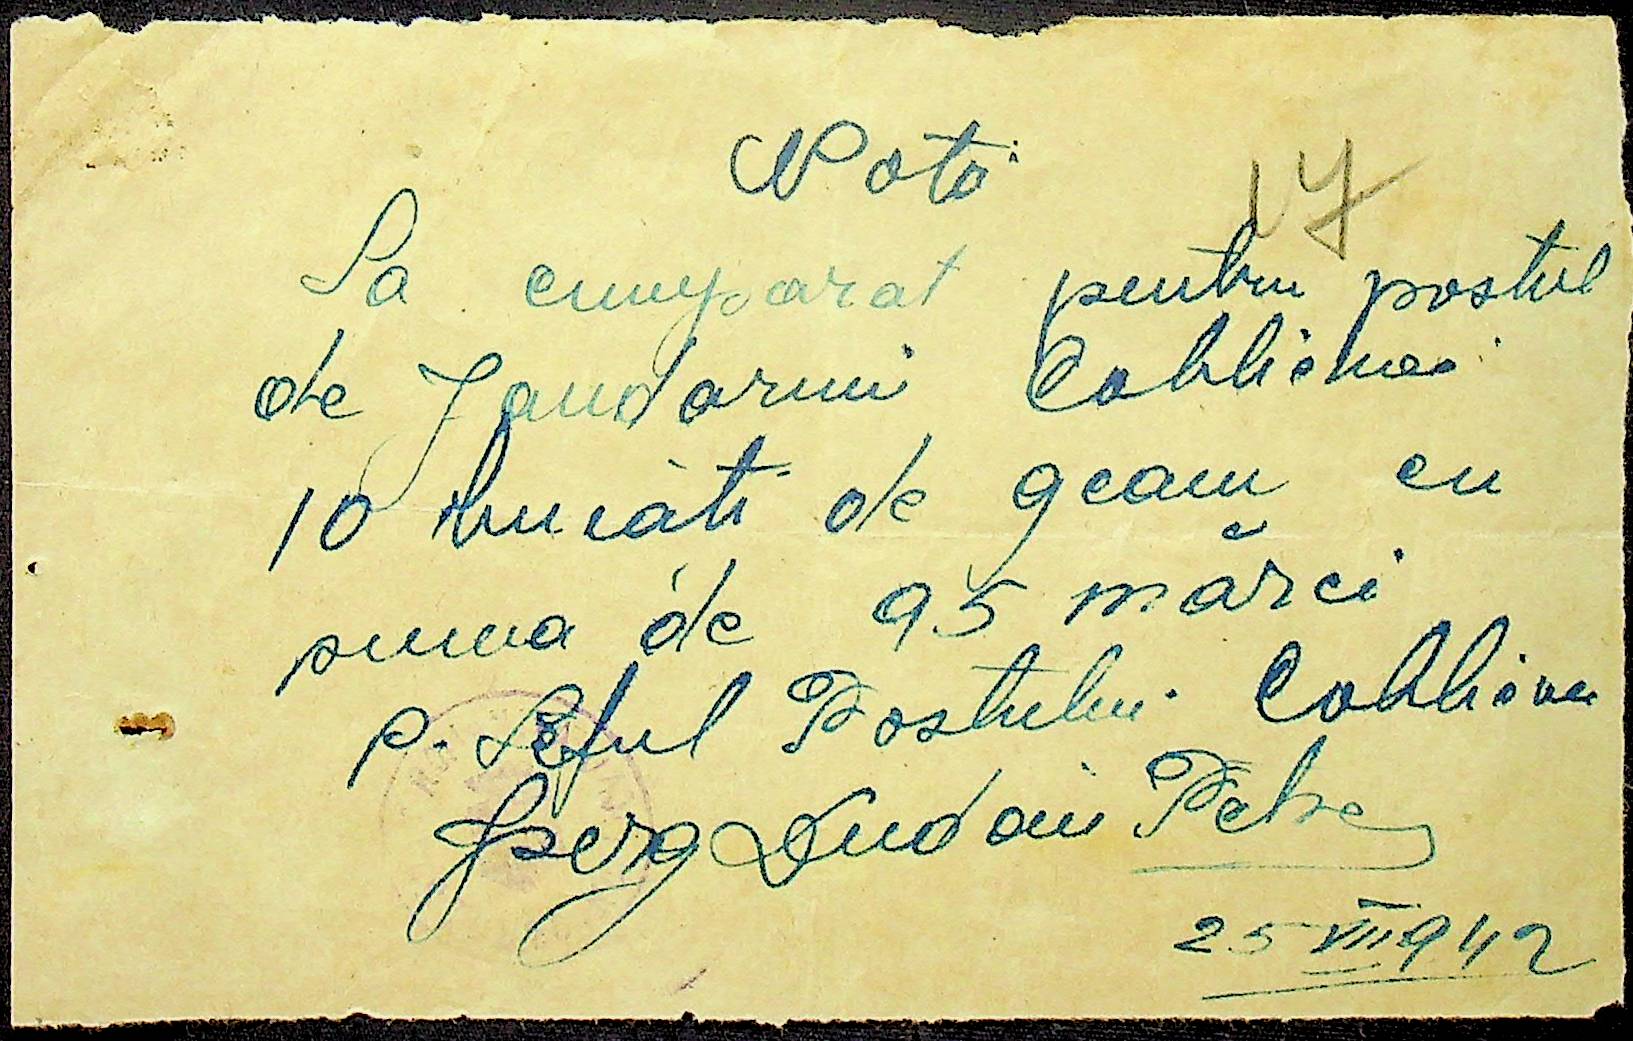 Notă
17
Sa cumparat pentru postul
de Jandarmi Cobliewca
10 bucăti de geam cu
suma de 95 mărci
p. Seful Postului Cobliewca
Serg Dudau Petre
25 VIII 942